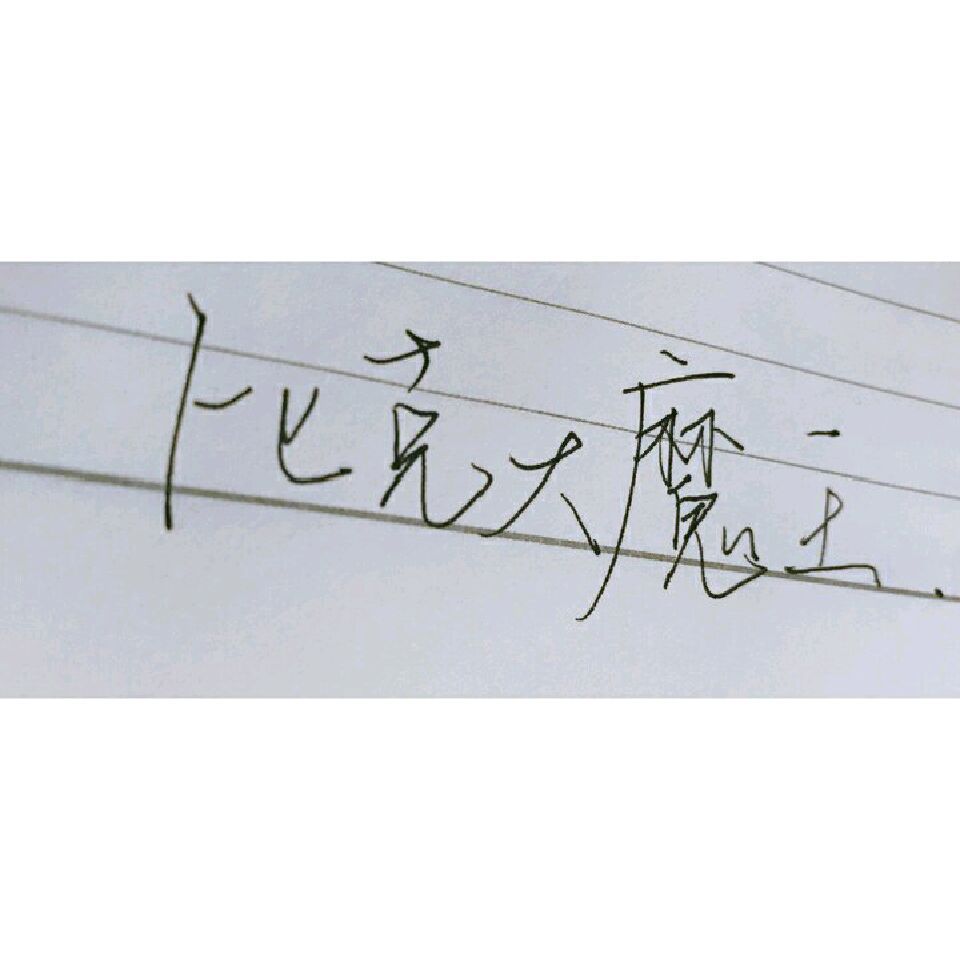 比克大魔王.